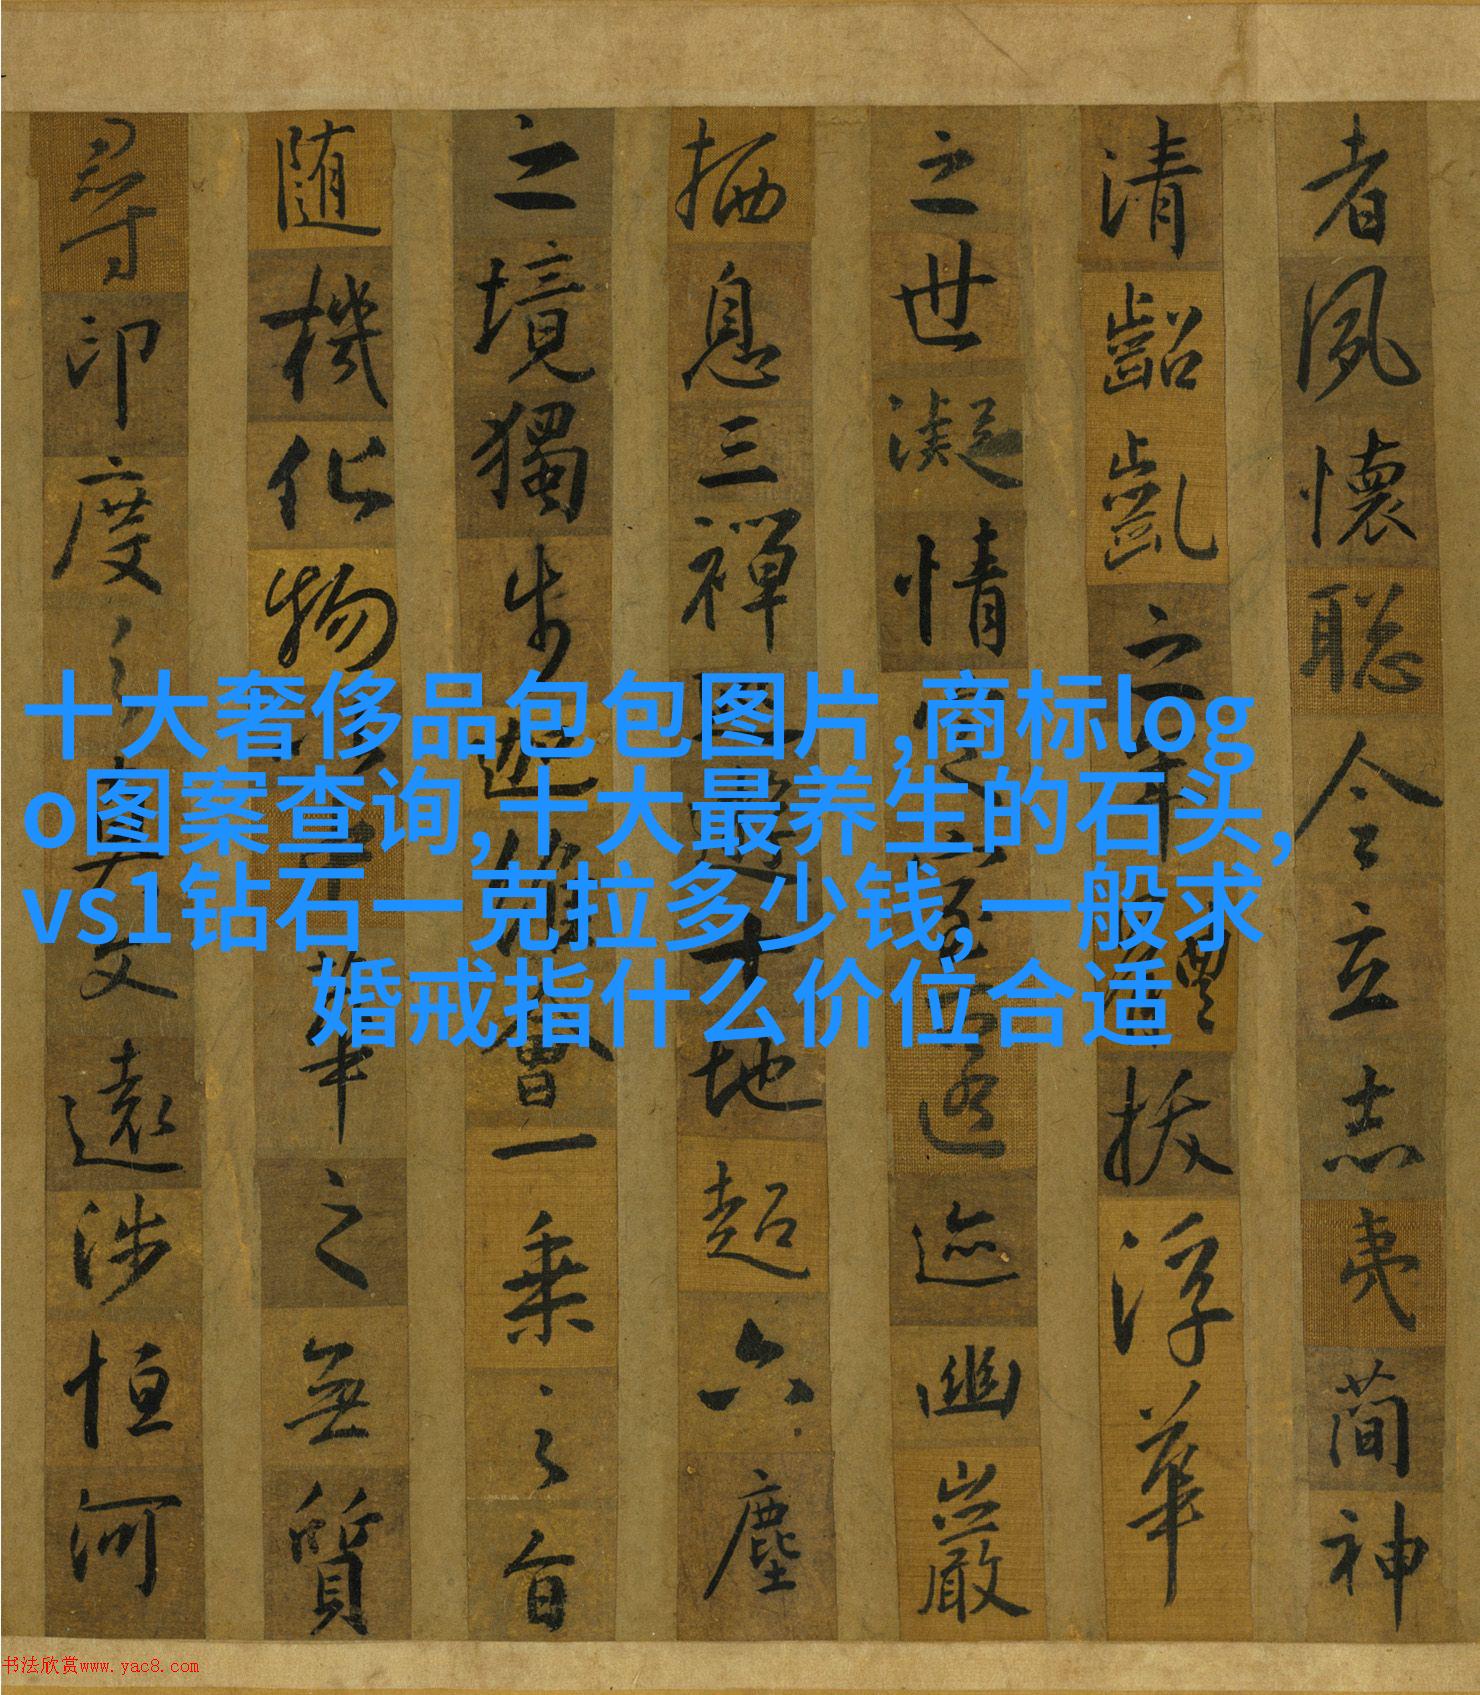 者夙懷聡令立志夷簡神
清齠齓之年體拔浮華
之世凝情定室匿迹幽巖
栖息三禪巡遊十地超六塵
之境獨步迦維會一乘之旨
随機化物以中華之無質
尋印度之真文遠涉恒河
十大奢侈品包包图片,商标log
o图案查询,十大最养生的石头,
vs1钻石一克拉多少钱,一般求
婚戒指什么价位合适
书法欣赏www.yac8.com